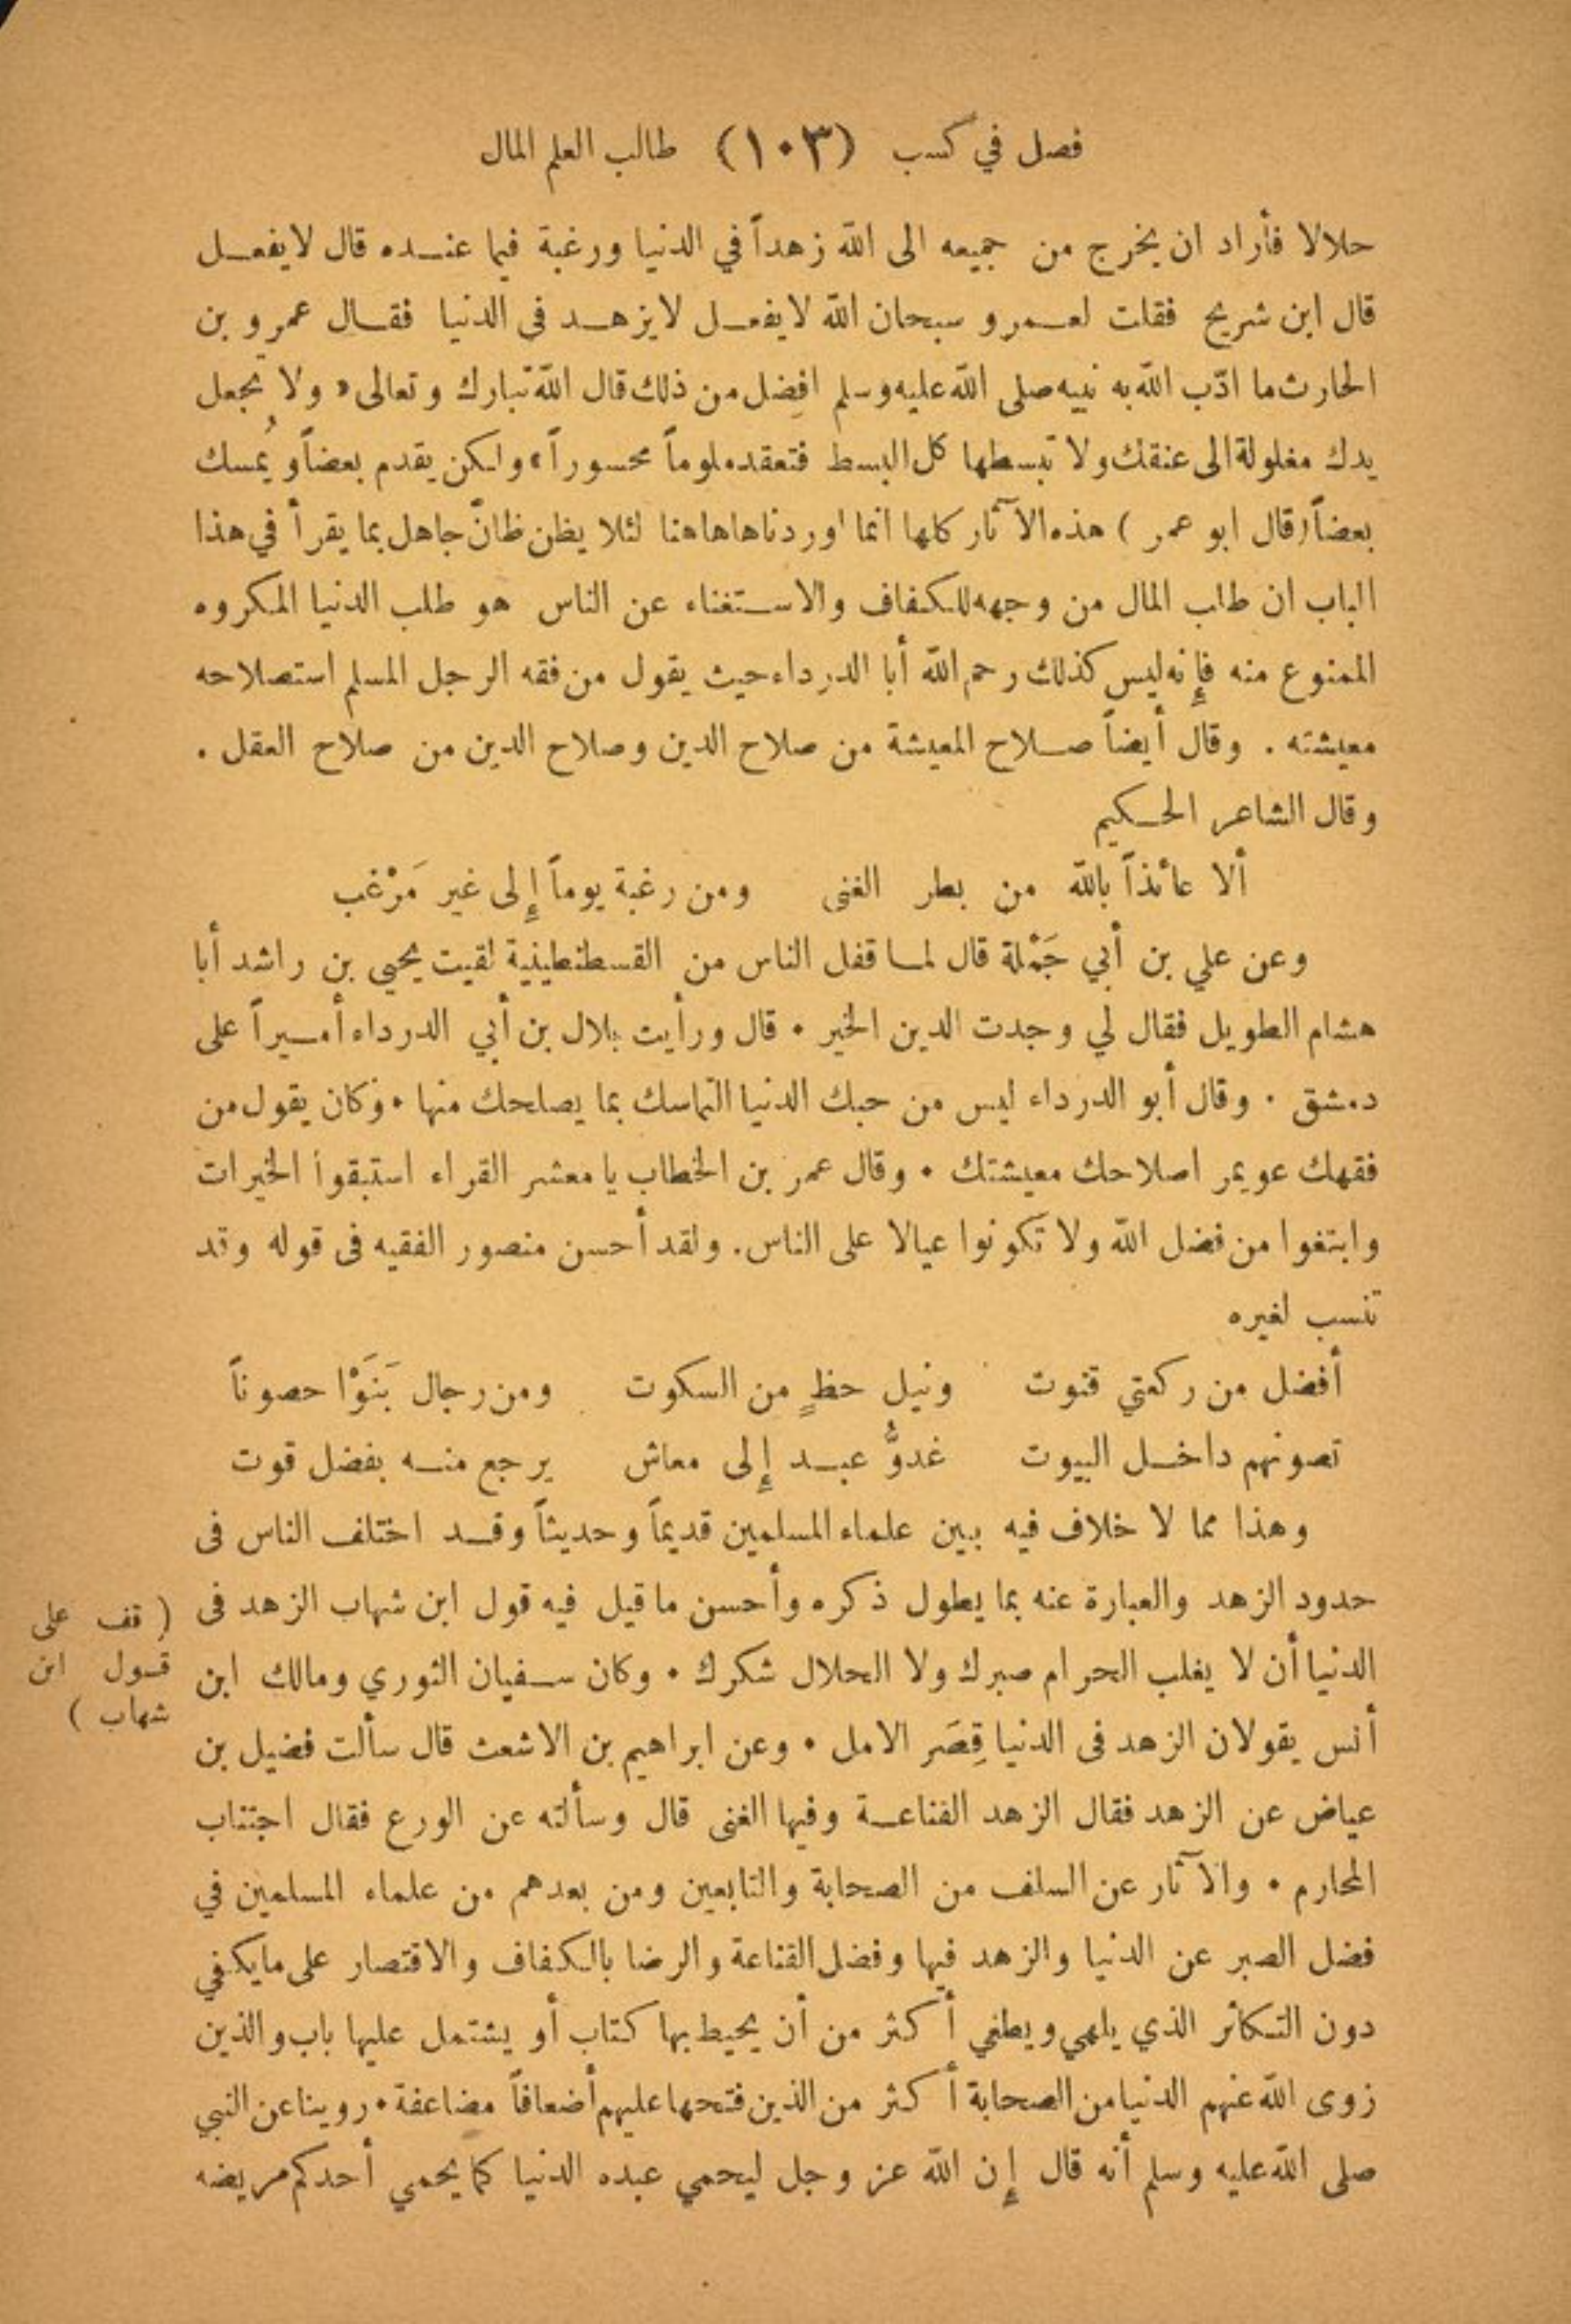 فصل في كسب (١٠٣) طالب العلم المال
حلالا فأراد ان يخرج من جميعه الى الله زهداً في الدنيا ورغبة فيما عنده قال لا يفعل
قال ابن شريح فقلت لعمرو سبحان الله لا يفعل لا يزهد فى الدنيا فقال عمرو بن
الحارث ما ادّب الله به نبيه صلى الله عليه وسلم افضل من ذلك قال الله تبارك وتعالى « ولا تجعل
يدك مغلولة الى عنقك ولا تبسطها كل البسط فتعقد ملوماً محسوراً » ولكن يقدم بعضاً ويُمسك
بعضاً (قال ابو عمر ) هذه الآثار كلها انما اوردناها هاهنا لئلا يظن ظانّ جاهل بما يقرأ في هذا
الباب ان طلب المال من وجهه للكفاف والاستغناء عن الناس هو طلب الدنيا المكروه
الممنوع منه فإنه ليس كذلك رحم الله أبا الدرداء حيث يقول من فقه الرجل المسلم استصلاحه
معيشته . وقال أيضاً صلاح المعيشة من صلاح الدين وصلاح الدين من صلاح العقل .
وقال الشاعر الحكيم
ألا عائذاً بالله من بطر الغنى ومن رغبة يوماً إلى غير مَرْغب
وعن علي بن أبي جَمْلة قال لما قفل الناس من القسطنطينية لقيت يحيي بن راشد أبا
هشام الطويل فقال لي وجدت الدين الخير ٠ قال ورأيت بلال بن أبي الدرداء أميراً على
دمشق ٠ وقال أبو الدرداء ليس من حبك الدنيا التماسك بما يصلحك منها ٠ وكان يقول من
فقهك عويمر اصلاحك معيشتك ٠ وقال عمر بن الخطاب يا معشر القراء استبقوا الخيرات
وابتغوا من فضل الله ولا تكونوا عيالا على الناس. ولقد أحسن منصور الفقيه فى قوله وقد
تنسب لغيره
أفضل من ركعتي قنوت ونيل حظٍ من السكوت ومن رجال بَنَوْا حصوناً
تصونهم داخل البيوت غدوُّ عبد إلى معاش يرجع منه بفضل قوت
وهذا مما لا خلاف فيه بين علماء المسلمين قديماً وحديثاً وقد اختلف الناس فى
حدود الزهد والعبارة عنه بما يطول ذكره وأحسن ما قيل فيه قول ابن شهاب الزهد فى
الدنيا أن لا يغلب الحرام صبرك ولا الحلال شكرك ٠ وكان سفيان الثوري ومالك ابن
أنس يقولان الزهد فى الدنيا قِصَر الامل ٠ وعن ابراهيم بن الاشعث قال سألت فضيل بن
عياض عن الزهد فقال الزهد القناعة وفيها الغنى قال وسألته عن الورع فقال اجتناب
المحارم ٠ والآثار عن السلف من الصحابة والتابعين ومن بعدهم من علماء المسلمين في
فضل الصبر عن الدنيا والزهد فيها وفضل القناعة والرضا بالكفاف والاقتصار على ما يكفي
دون التكاثر الذي يلهي ويطغي أكثر من أن يحيط بها كتاب أو يشتمل عليها باب والذين
زوى الله عنهم الدنيا من الصحابة أكثر من الذين فتحها عليهم أضعافاً مضاعفة ٠ روينا عن النبي
صلى الله عليه وسلم أنه قال إن الله عز وجل ليحمي عبده الدنيا كما يحمي أحدكم مريضه
( قف على
قول ابن
شهاب )